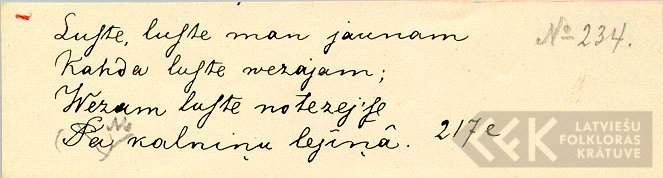 Lusƒte, lusƒte man jaunam
Kahda lusƒte wezajam;
Wezam lusƒte notezejse
(Pa) No kalniņu lejiņâ.
217e
№ 234.
LATVIEŠU
FOLKLORAS
KRĀTUVE